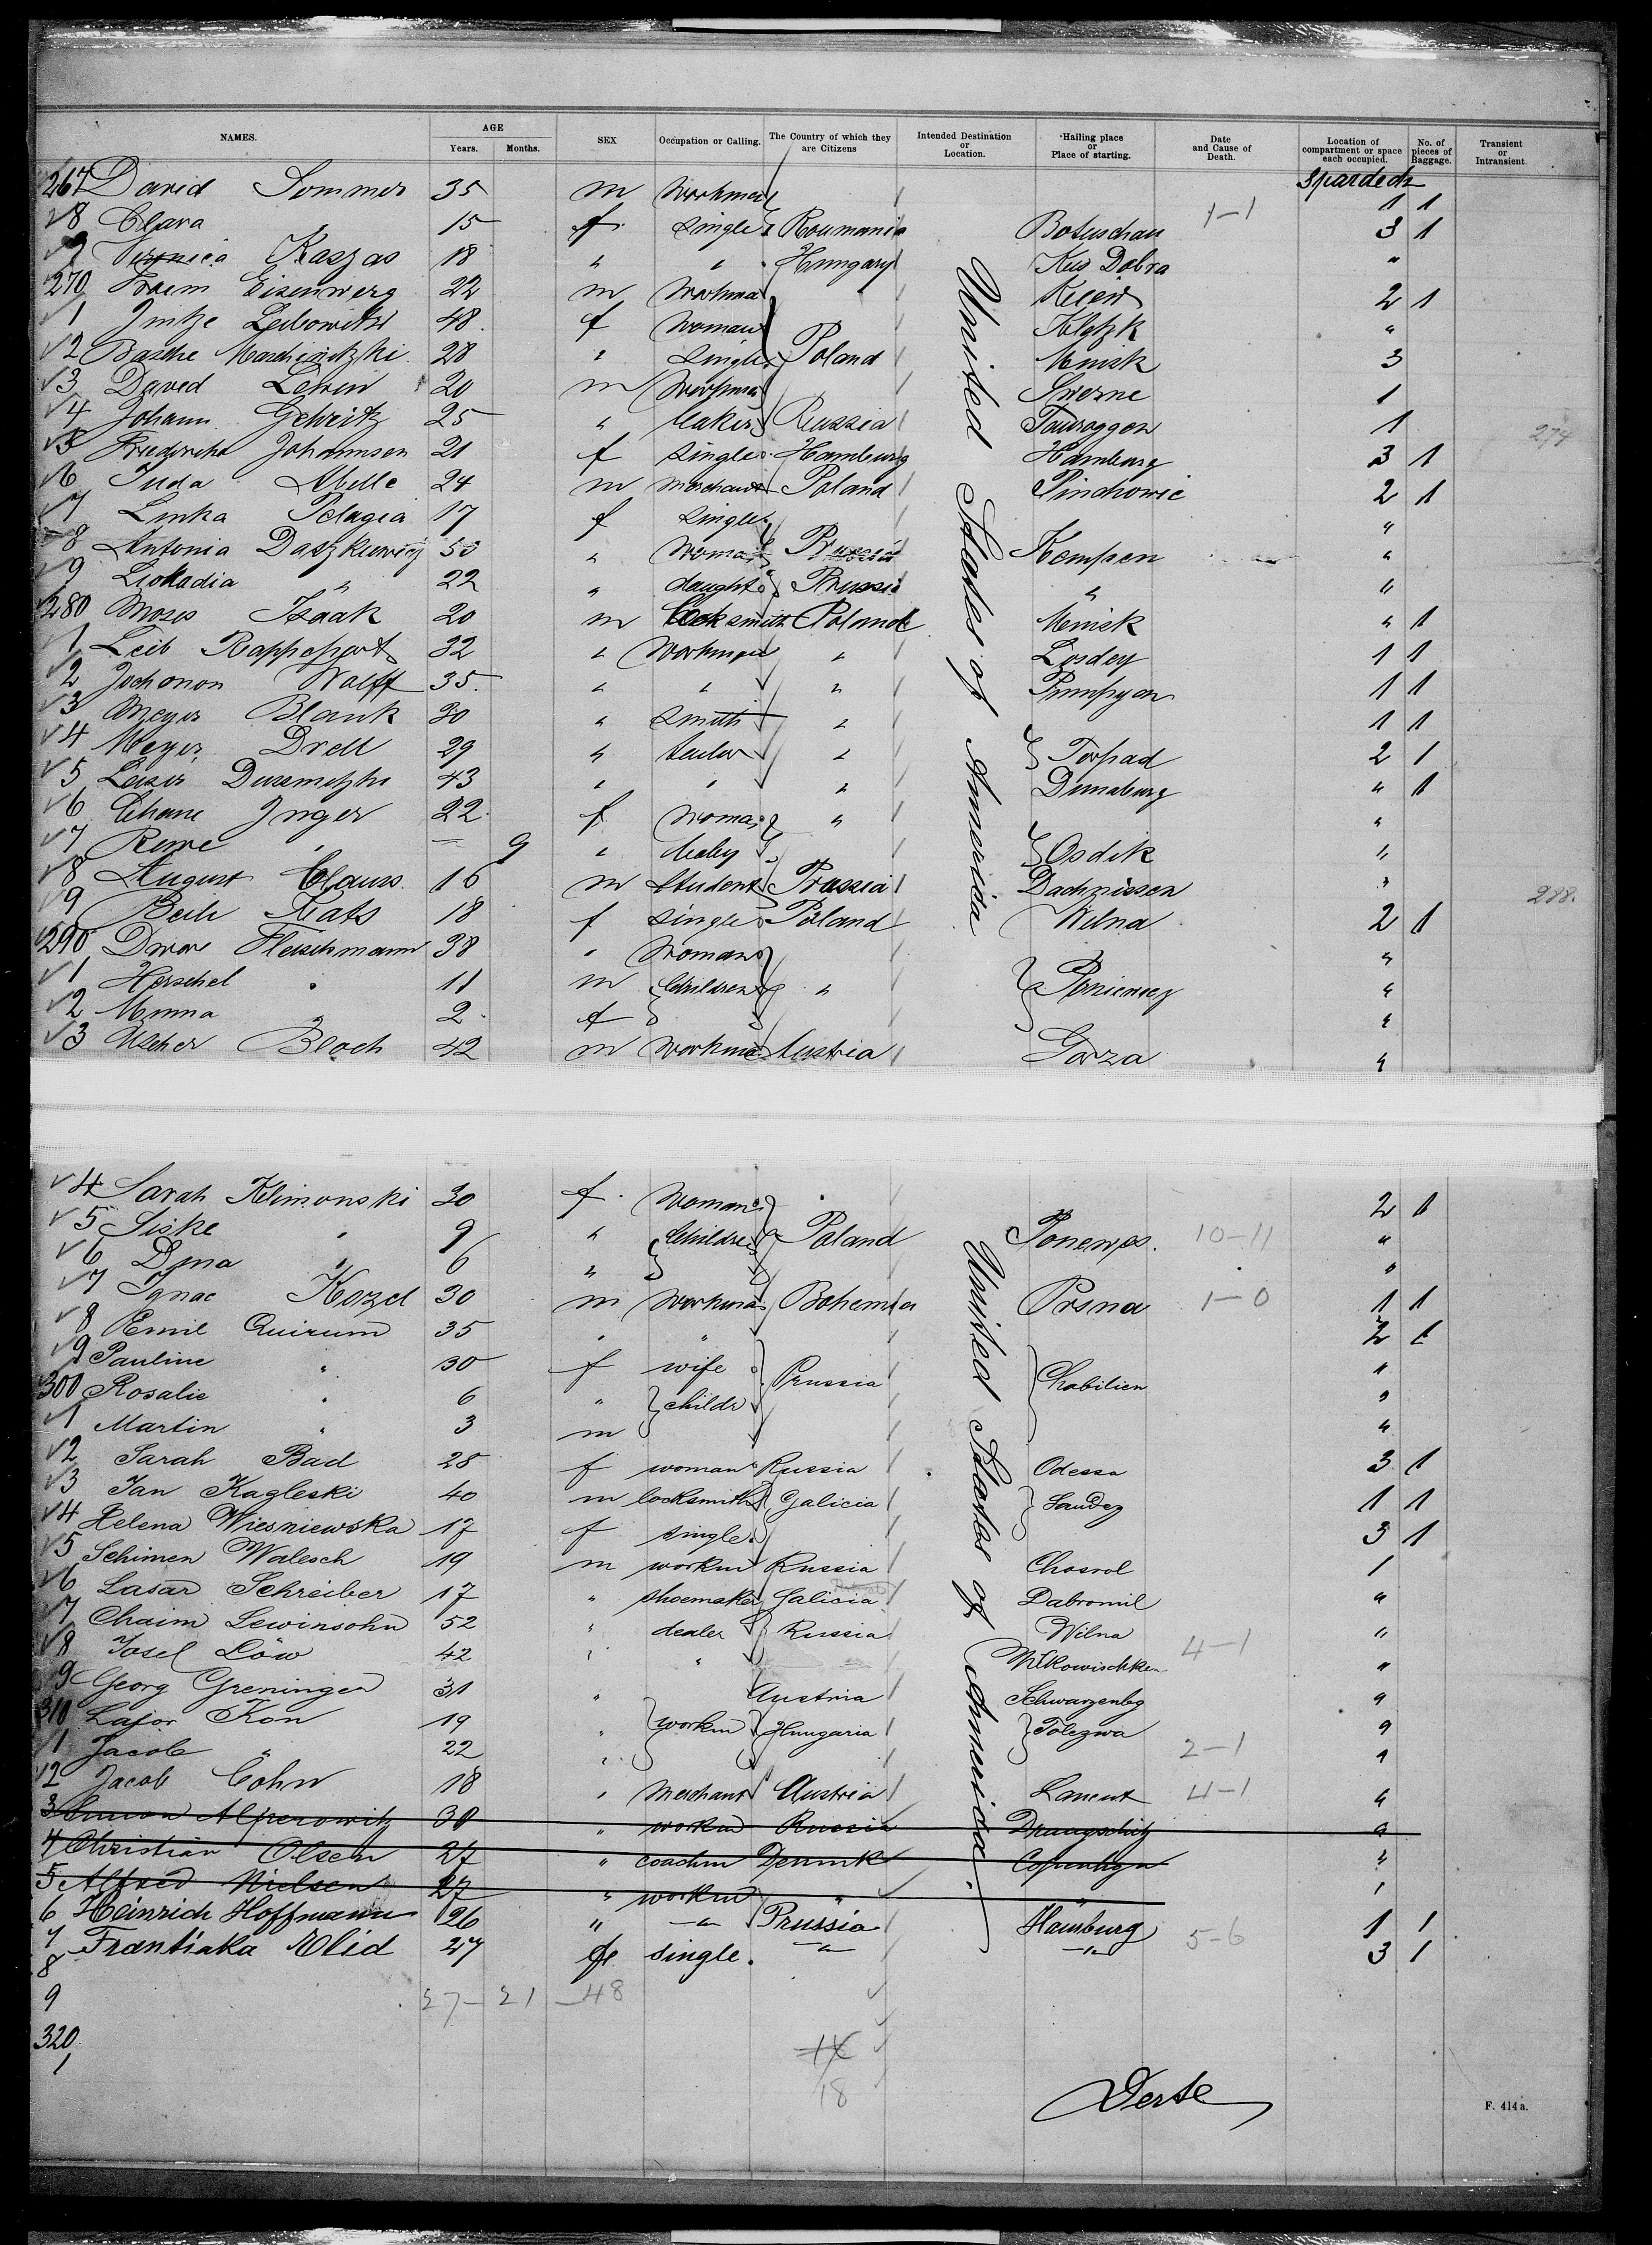 NAMES. AGE SEX Occupation or Calling. The Country of which they are Citizens Intended Destination or Location. Hailing place or Place of starting. Date and Cause of Death. Location of compartment or space each occupied. No. of pieces of Baggage. Transient or Intransient.
Years. Months.
Spardeck
267 David Sommer 35 m Workman 1 1
8 Clara 15 f single Roumania Botuschan 1-1 3 1
9 Kaszas 18 " " Hungary Kis Dobra "
270 Froim Eisenwerg 22 m Workma 2 1
1 Leibowitz 48 f Woman Klotzk "
2 Basche 28 " Single Poland Minsk 3
3 David Lewin 20 m Workma 1
4 Johann 25 " baker Russia Tauroggen 1 274
5 Johannsen 21 f single Hamburg Hamburg 3 1
6 Juda Abelle 24 m merchant Poland Pinchowic 2 1
7 Linka Pelagia 17 f single "
8 Antonia Daszkiewicz 53 " Woma Prussia Kempen "
9 Liokadia " 22 " daught Prussia " "
280 Moses Isaak 20 m locksmith Poland Minsk " 1
1 Leib Rappeport 32 " Workman " Losdey 1 1
2 Jochonon Wolff 35 " " " Pumpyan 1 1
3 Meyer Blank 30 " smith " 1 1
4 Meyer Drell 29 " " Torpad 2 1
5 Leiser 43 " " " Dunaburg " 1
6 Chane Inger 22 f Woma " "
7 Rewe " — 9 " baby Osdik "
8 August Clauss 16 m student Prussia Dachnissen " 288.
9 Beile Kats 18 f single Poland Wilna 2 1
290 Dwore Fleischmann 38 " Woman "
1 Herschel " 11 m Children " "
2 Minna " 2 f "
3 Ascher Bloch 42 m Workma Austria Gorza "
United States of America
4 Sarah Klimonski 30 f Woman 2 1
5 Siske " 9 " Childre Poland Ponewes. 10-11 "
6 Dina " 6 " "
7 Ignac Kozel 30 m Workma Bohemia Prsna 1-0 1 1
8 Emil Quirum 35 " " 2 1
9 Pauline " 30 f wife Prussia Chabilien "
300 Rosalie " 6 " childr "
1 Martin " 3 m "
2 Sarah Bad 28 f woman Russia Odessa 3 1
3 Jan Kagleski 40 m locksmith Galicia Sandez 1 1
4 Helena Wiesniewska 17 f single 3 1
5 Schimen Walesch 19 m workm Russia Chosrol 1
6 Lasar Schreiber 17 " shoemaker Galicia Dabromil "
7 Chaim Lewinsohn 52 " dealer Russia Wilna "
8 Josel Löw 42 " " Wilkowischken 4-1 "
9 Georg Greninger 31 " Austria Schwarzenbg "
310 Lajor Kon 19 " workm Hungaria Tolczwa "
1 Jacob " 22 " 2-1 "
2 Jacob Cohn 18 " Merchant Austria Lancut 4-1 "
3 Simon Alperowitz 30 " workm Russia "
4 Christian Olsen 27 " coachm Denmk Copenhgn "
5 Alfred Nielsen 27 " workm " "
6 Heinrich Hoffmann 26 " " Prussia Hamburg 1 1
7 Frantiska 27 f single. " " 5-6 3 1
8
9 27- 21 -48
320
1
18
United States of America.
F. 414 a.